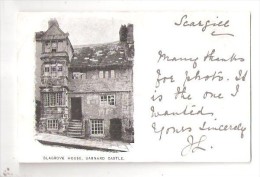 Scargill
Many thanks
for photo. It
is the one I
wanted
Yours Sincerely
BLAGROVE HOUSE, BARNARD CASTLE.